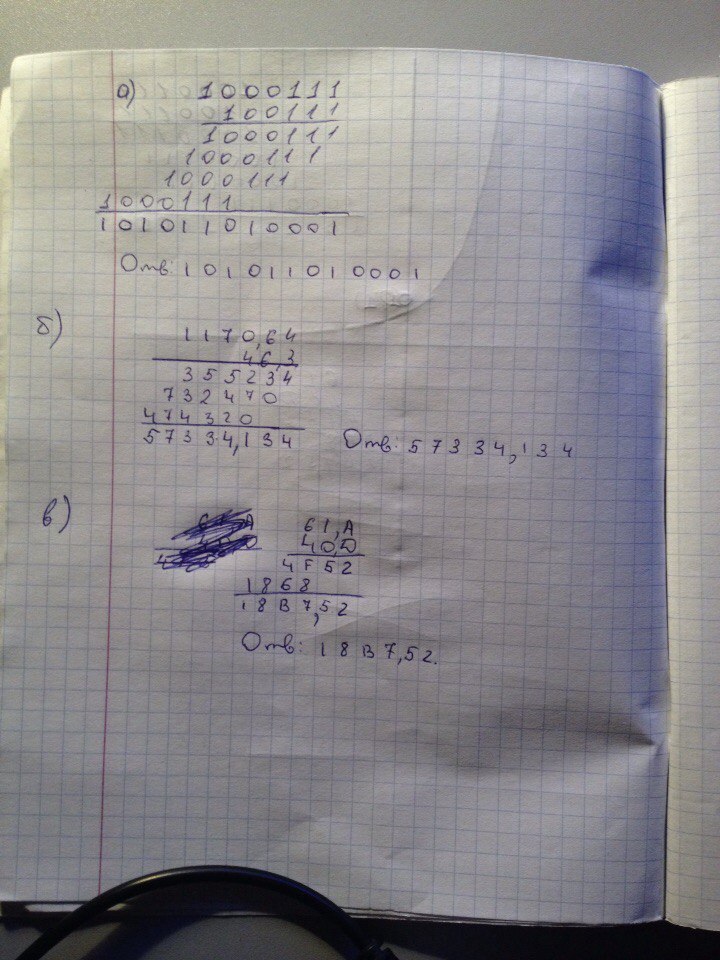 а) 1000111
100111
1000111
1000111
1000111
1000111
101011010001
Отв: 101011010001
б)
1170,64
46,3
355234
732470
474320
57334,134
Отв: 57334,134
в)
61,А
40,D
4F52
1868
18B7,52
Отв: 18B7,52.